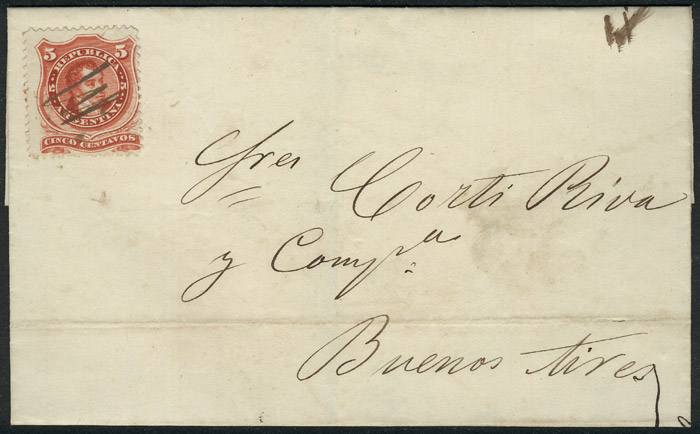 5 5
REPUBLICA
5 5
ARGENTINA
CINCO CENTAVOS
Sres
Corti Riva
y Compª
Buenos Aires